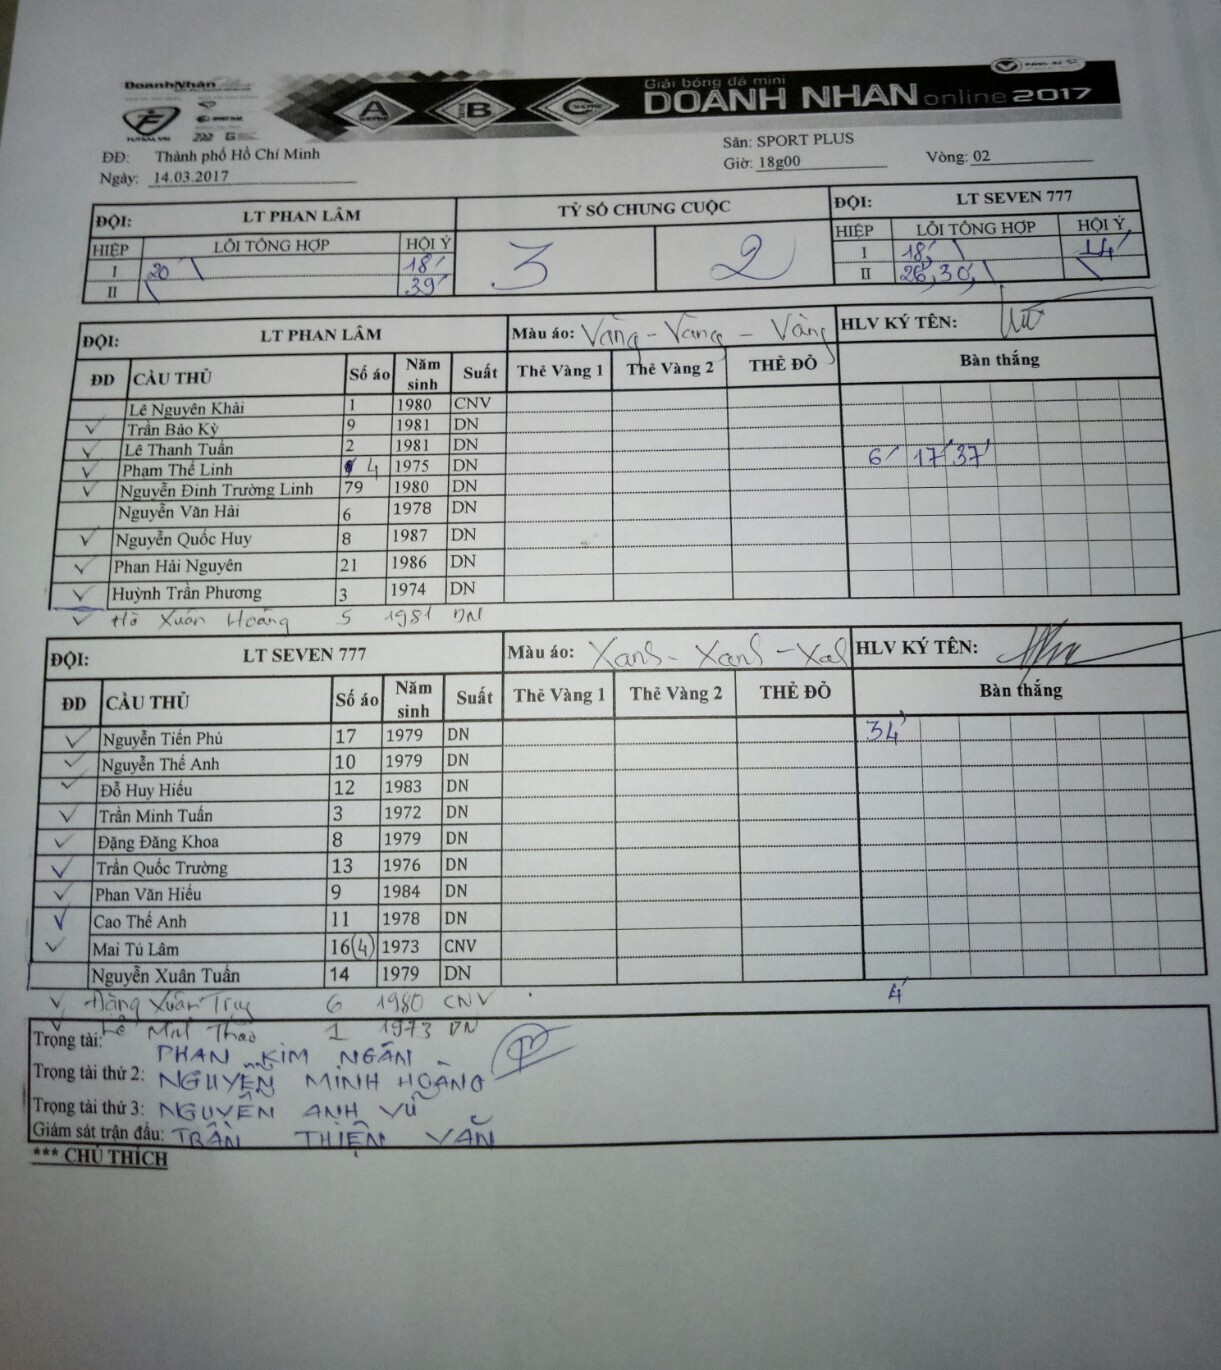 DoanhNhân
Giải bóng đá mini
A SERIE B SERIE C SERIE
DOANH NHÂN online 2017
FUTSAL.VN
ĐĐ: Thành phố Hồ Chí Minh
Sân: SPORT PLUS
Ngày: 14.03.2017
Giờ: 18g00 Vòng: 02
ĐỘI: LT PHAN LÂM TỶ SỐ CHUNG CUỘC ĐỘI: LT SEVEN 777
HIỆP LỖI TỔNG HỢP HỘI Ý 3 2 HIỆP LỖI TỔNG HỢP HỘI Ý
I 20' \ 18' I 18', \ 14'
II \ 39' II 26', 30', \ \
ĐỘI: LT PHAN LÂM Màu áo: Vàng - Vàng - Vàng HLV KÝ TÊN:
ĐD CẦU THỦ Số áo Năm sinh Suất Thẻ Vàng 1 Thẻ Vàng 2 THẺ ĐỎ Bàn thắng
Lê Nguyên Khải 1 1980 CNV
✓ Trần Bảo Kỳ 9 1981 DN
✓ Lê Thanh Tuấn 2 1981 DN
✓ Phạm Thế Linh 4 1975 DN 6' 17' 37'
✓ Nguyễn Đinh Trường Linh 79 1980 DN
Nguyễn Văn Hải 6 1978 DN
✓ Nguyễn Quốc Huy 8 1987 DN
✓ Phan Hải Nguyên 21 1986 DN
✓ Huỳnh Trần Phương 3 1974 DN
✓ Hồ Xuân Hoàng 5 1981 DN
ĐỘI: LT SEVEN 777 Màu áo: Xanh - Xanh - Xah HLV KÝ TÊN:
ĐD CẦU THỦ Số áo Năm sinh Suất Thẻ Vàng 1 Thẻ Vàng 2 THẺ ĐỎ Bàn thắng
✓ Nguyễn Tiến Phú 17 1979 DN 34'
✓ Nguyễn Thế Anh 10 1979 DN
✓ Đỗ Huy Hiếu 12 1983 DN
✓ Trần Minh Tuấn 3 1972 DN
✓ Đặng Đăng Khoa 8 1979 DN
✓ Trần Quốc Trường 13 1976 DN
✓ Phan Văn Hiếu 9 1984 DN
✓ Cao Thế Anh 11 1978 DN
✓ Mai Tú Lâm 16(4) 1973 CNV
Nguyễn Xuân Tuấn 14 1979 DN
✓ Đàng Xuân 6 1980 CNV 4'
✓ Lê Thảo 1 1973 DN
Trọng tài: PHAN KIM NGÂN
Trọng tài thứ 2: NGUYỄN MINH HOÀNG
Trọng tài thứ 3: NGUYỄN ANH VŨ
Giám sát trận đấu: TRẦN THIỆN VĂN
*** CHÚ THÍCH